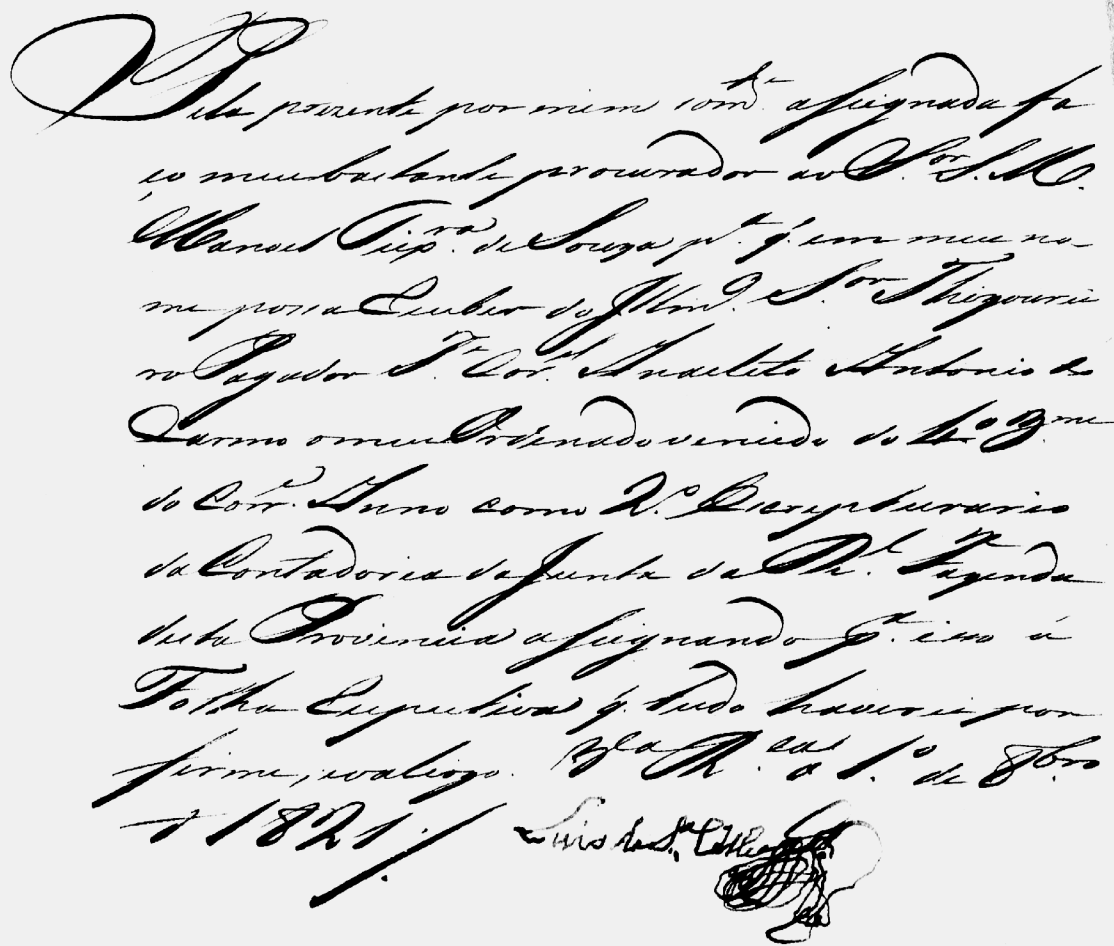 Pela prezente por mim som.te assignada fa
ço meu bastante procurador ao S.or S. M.
Manoel Teix.ra de Souza p.a q. em meu no-
me possa Receber do Illm.o S.or Thezourei
ro Pagador T.e Cor.el Anacleto Antonio do
Carmo o meu Ordenado vencido do 4.o 3.me
do Corr.e Anno como 2.o Escripturario
da Contadoria da Junta da R.l Fazenda
desta Provincia assignando p.r isso á
Folha Respectiva q. tudo haverei por
firme, e valiozo. V.a R.ca a 1.o de 8bro
d 1821./
Luis de S.